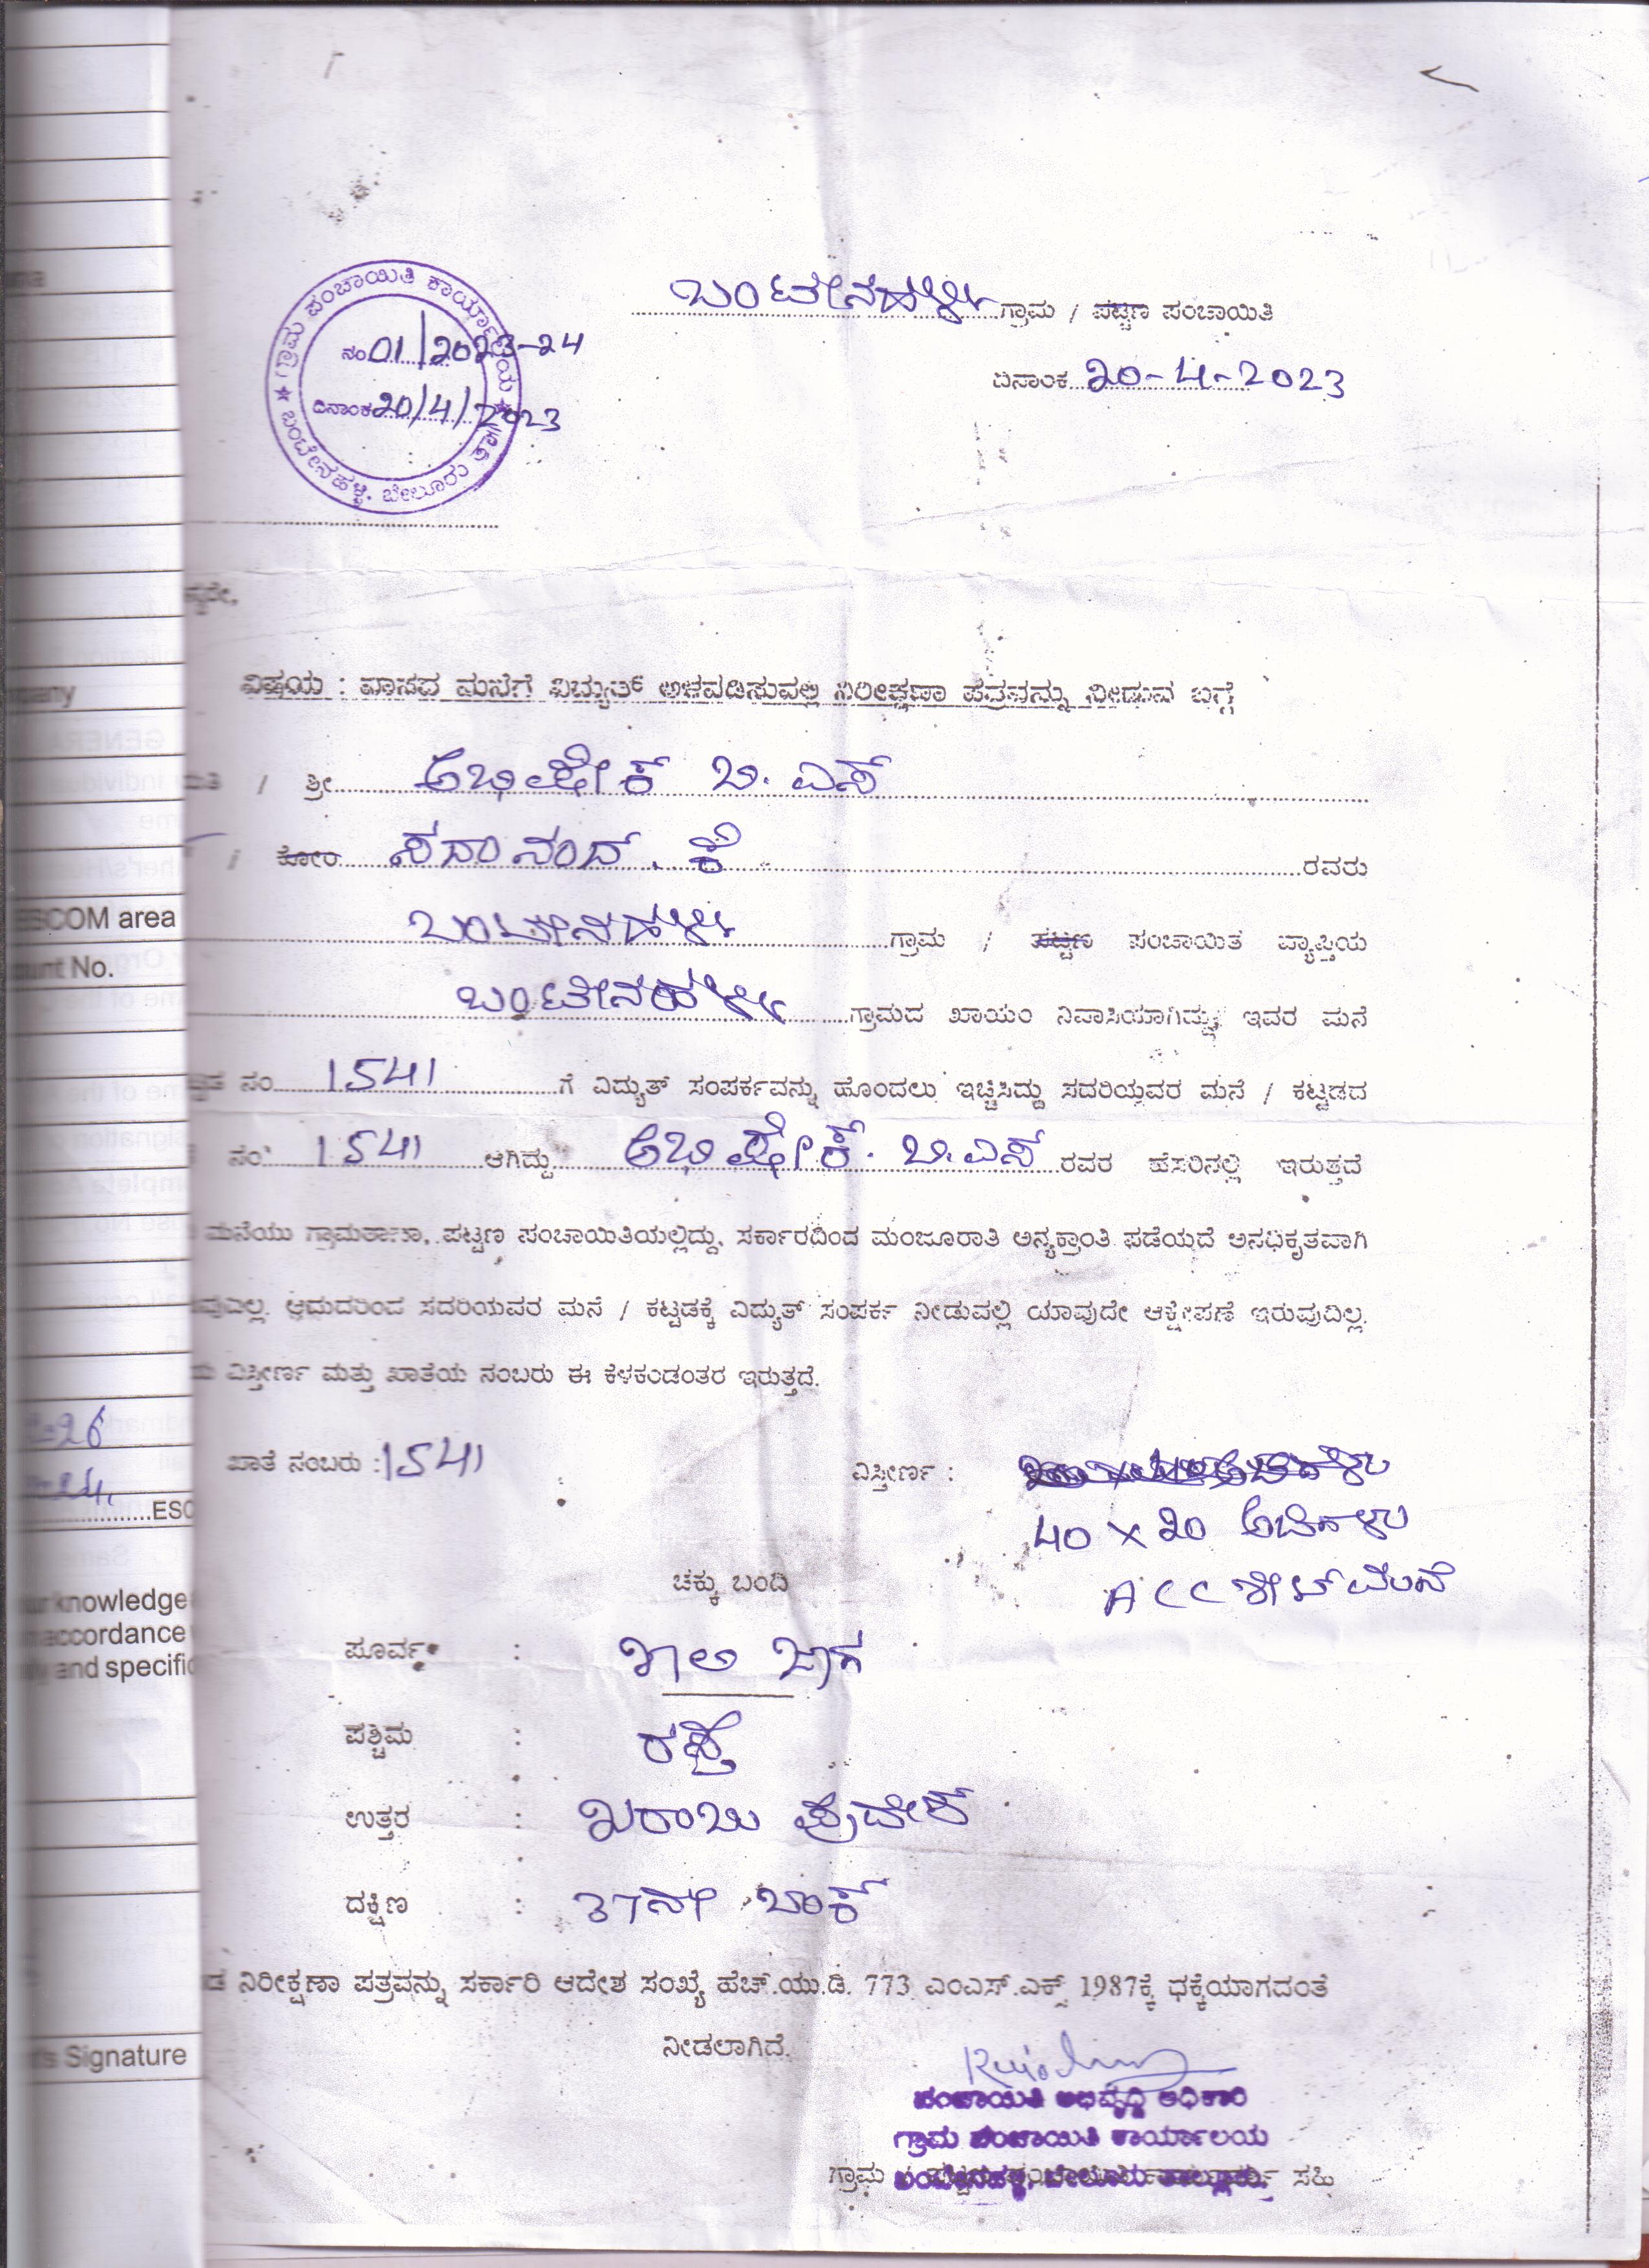 ಗ್ರಾಮ ಪಂಚಾಯಿತಿ ಕಾರ್ಯಾಲಯ
ನಂ 01/2023-24
ದಿನಾಂಕ 20/4/2023
ಬಂಟೇನಹಳ್ಳಿ, ಬೇಲೂರು ತಾ||
ಬಂಟೇನಹಳ್ಳಿ ಗ್ರಾಮ / ಪಟ್ಟಣ ಪಂಚಾಯಿತಿ
ದಿನಾಂಕ 20-4-2023
ವಿಷಯ : ವಾಸದ ಮನೆಗೆ ವಿದ್ಯುತ್ ಅಳವಡಿಸುವಲ್ಲಿ ನಿರೀಕ್ಷಣಾ ಪತ್ರವನ್ನು ನೀಡುವ ಬಗ್ಗೆ
/ ಶ್ರೀ ಅಭಿಷೇಕ್ ಬಿ. ಎಸ್
/ ಕೋಂ ಸದಾನಂದ್. ಕೆ ರವರು
ಬಂಟೇನಹಳ್ಳಿ ಗ್ರಾಮ / ಪಟ್ಟಣ ಪಂಚಾಯಿತ ವ್ಯಾಪ್ತಿಯ
ಬಂಟೇನಹಳ್ಳಿ ಗ್ರಾಮದ ಖಾಯಂ ನಿವಾಸಿಯಾಗಿದ್ದು, ಇವರ ಮನೆ
ನಂ 1541 ಗೆ ವಿದ್ಯುತ್ ಸಂಪರ್ಕವನ್ನು ಹೊಂದಲು ಇಚ್ಚಿಸಿದ್ದು ಸದರಿಯವರ ಮನೆ / ಕಟ್ಟಡದ
ನಂ 1541 ಆಗಿದ್ದು ಅಭಿಷೇಕ್. ಬಿ.ಎಸ್ ರವರ ಹೆಸರಿನಲ್ಲಿ ಇರುತ್ತದೆ
ಮನೆಯು ಗ್ರಾಮಠಾಣಾ, ಪಟ್ಟಣ ಪಂಚಾಯಿತಿಯಲ್ಲಿದ್ದು, ಸರ್ಕಾರದಿಂದ ಮಂಜೂರಾತಿ ಅನ್ಯಕ್ರಾಂತಿ ಪಡೆಯದೆ ಅನಧಿಕೃತವಾಗಿ
ಆದುದರಿಂದ ಸದರಿಯವರ ಮನೆ / ಕಟ್ಟಡಕ್ಕೆ ವಿದ್ಯುತ್ ಸಂಪರ್ಕ ನೀಡುವಲ್ಲಿ ಯಾವುದೇ ಆಕ್ಷೇಪಣೆ ಇರುವುದಿಲ್ಲ.
ವಿಸ್ತೀರ್ಣ ಮತ್ತು ಖಾತೆಯ ನಂಬರು ಈ ಕೆಳಕಂಡಂತರ ಇರುತ್ತದೆ.
ಖಾತೆ ನಂಬರು : 1541
ವಿಸ್ತೀರ್ಣ :
40 x 20 ಅಡಿಗಳು
ACC ಶೀಟ್ ಮನೆ
ಚಕ್ಕು ಬಂದಿ
ಪೂರ್ವ : ಖಾಲಿ ಜಾಗ
ಪಶ್ಚಿಮ : ರಸ್ತೆ
ಉತ್ತರ : ಖರಾಬು ಪ್ರದೇಶ್
ದಕ್ಷಿಣ : 37ನೇ ಬಂಕ್
ನಿರೀಕ್ಷಣಾ ಪತ್ರವನ್ನು ಸರ್ಕಾರಿ ಆದೇಶ ಸಂಖ್ಯೆ ಹೆಚ್.ಯು.ಡಿ. 773 ಎಂಎಸ್.ಎಕ್ಸ್ 1987ಕ್ಕೆ ಧಕ್ಕೆಯಾಗದಂತೆ
ನೀಡಲಾಗಿದೆ.
ಪಂಚಾಯಿತಿ ಅಭಿವೃದ್ಧಿ ಅಧಿಕಾರಿ
ಗ್ರಾಮ ಪಂಚಾಯಿತಿ ಕಾರ್ಯಾಲಯ
ಬಂಟೇನಹಳ್ಳಿ, ಬೇಲೂರು ತಾಲ್ಲೂಕು.
ಗ್ರಾಮ ಸಹಿ
ESCOM area
No.
knowledge
accordance
and specific
Signature